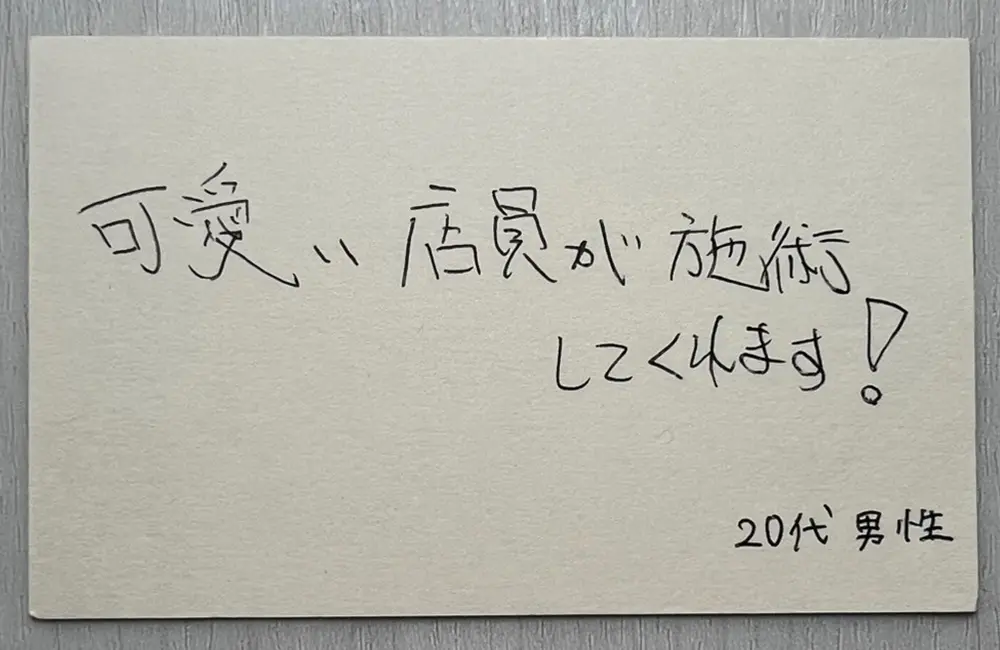 可愛い店員が施術
してくれます!
20代 男性